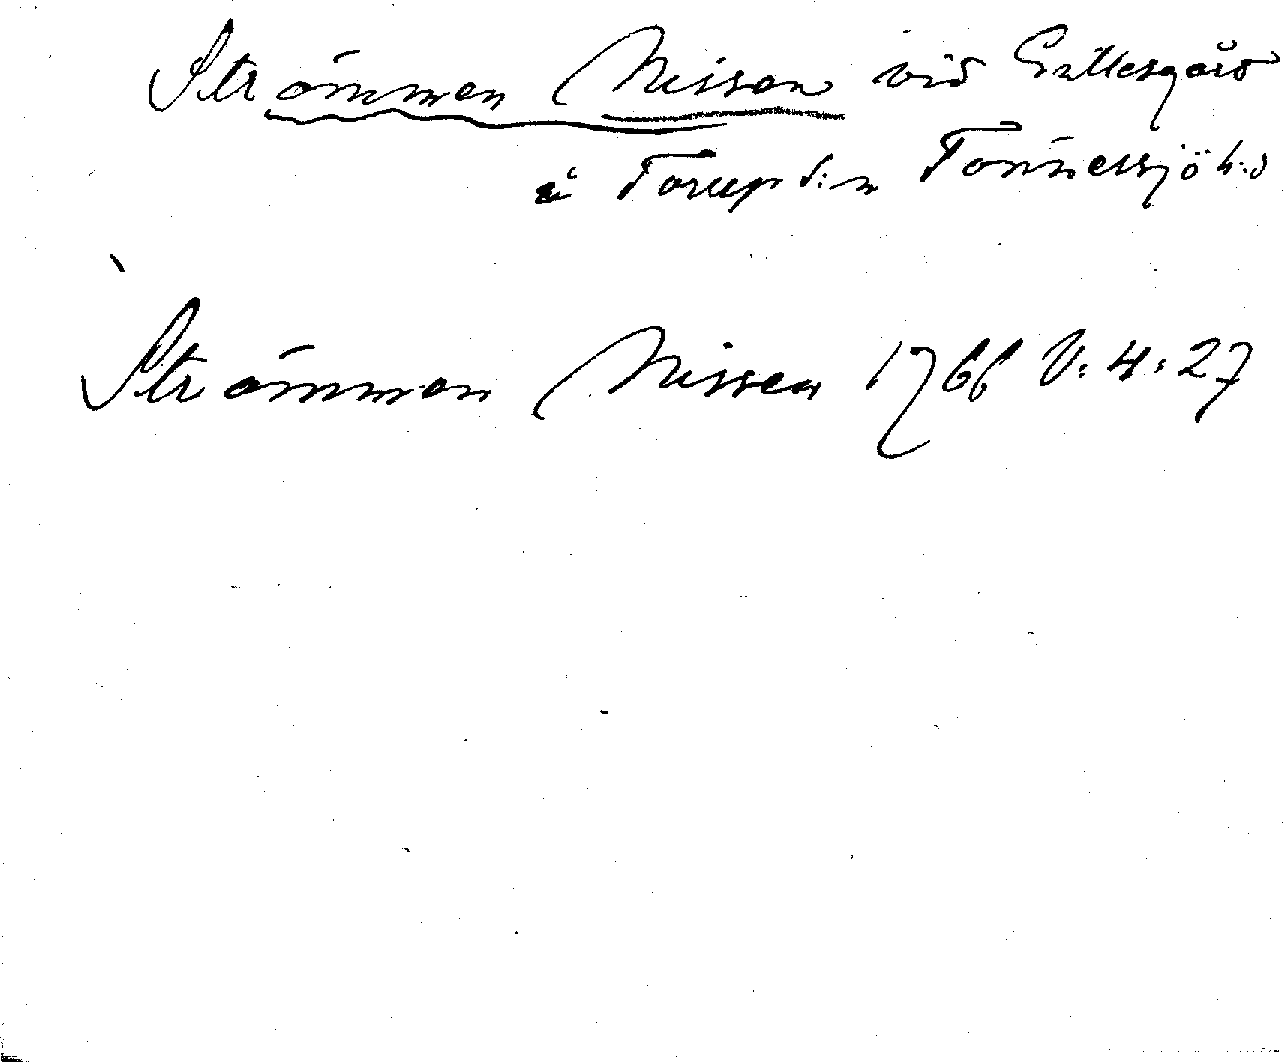 Strömmen Nissen vid Gatlesgård
å Torup s:n Tönnersjö h:d
Strömmen Nissen 1766 V: 4: 27